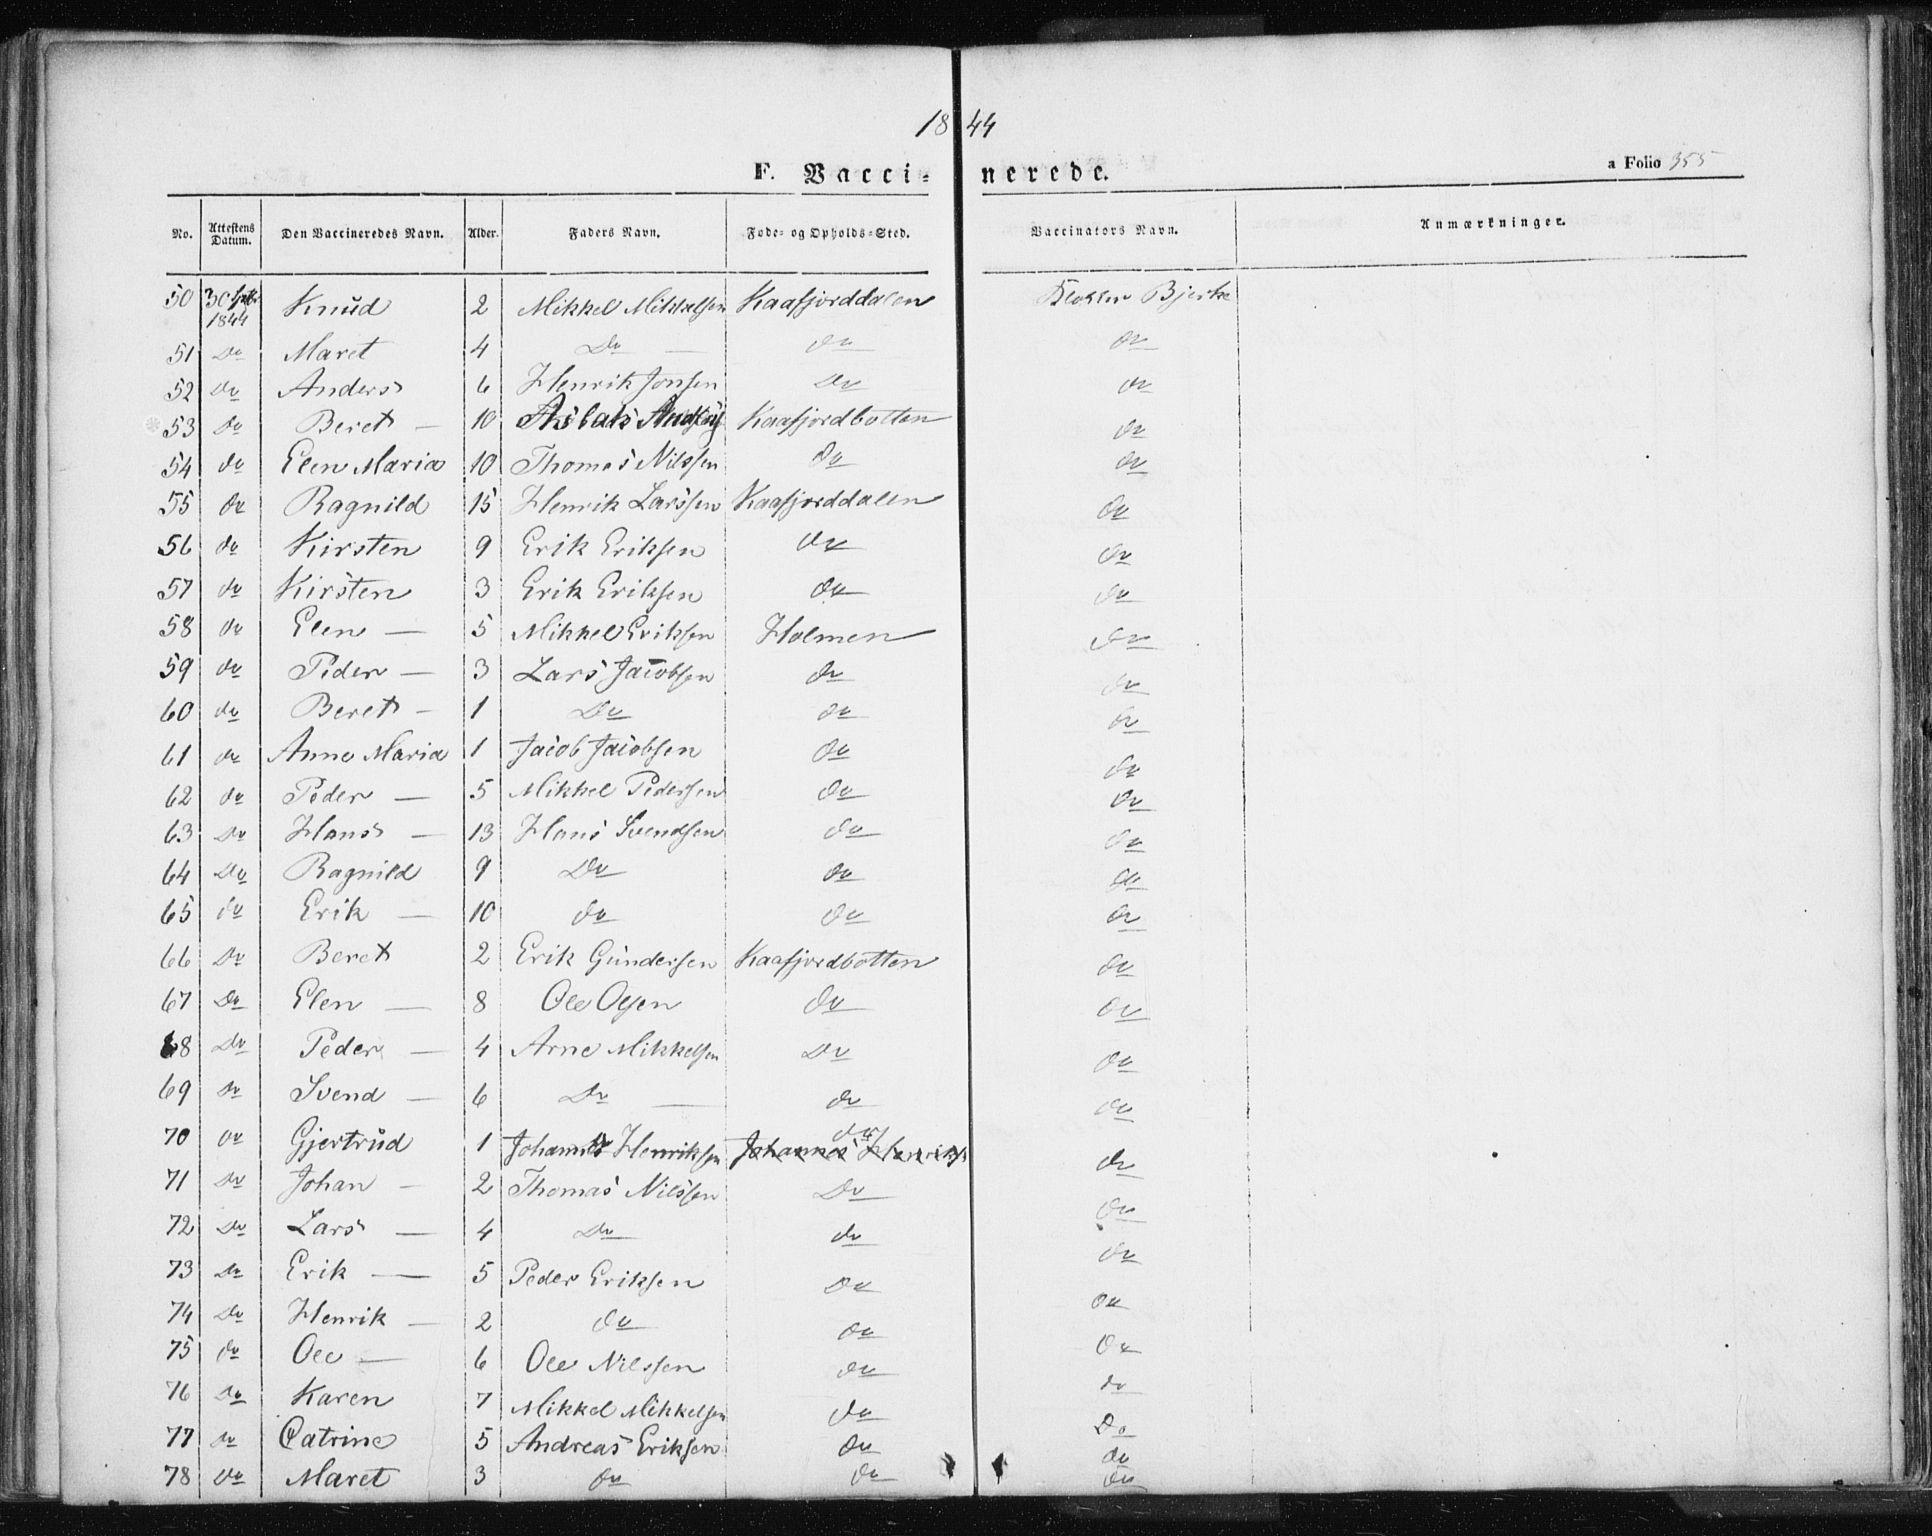 1844
F. Vaccinerede. a Folio 355
No. Attestens Datum. Den Vaccineredes Navn. Alder. Faders Navn. Føde- og Opholds-Sted. Vaccinators Navn. Anmærkninger.
50 30 1844 Knud 2 Mikkel Mikkelsen Kaafjorddalen Klokker Bjerke
51 Do Maret 4 Do do do
52 do Anders 6 Henrik Jonsen Do do
53 Do Beret 10 Aslak Kaafjordbotten do
54 do Elen Maria 10 Thomas Nilssen do do
55 do Ragnild 15 Henrik Larssen Kaafjorddalen do
56 do Kirsten 9 Erik Eriksen do do
57 do Kirsten 3 Erik Eriksen do do
58 do Elen 5 Mikkel Eriksen Holmen do
59 do Peder 3 Lars Jacobsen do do
60 do Beret 1 Do do do
61 do Anne Maria 1 Jacob Jacobsen do do
62 do Peder 5 Mikkel Pedersen do do
63 Do Hans 13 Hans Svendsen do do
64 Do Ragnild 9 Do do do
65 do Erik 10 do do do
66 Do Beret 2 Erik Gundersen Kaafjordbotten do
67 Do Elen 8 Ole Olsen do do
68 Do Peder 4 Arne Mikkelsen Do do
69 Do Svend 6 Do do do
70 do Gjertrud 1 Johannes Henriksen Johannes Henriks do do
71 Do Johan 2 Thomas Nilssen Do do
72 Do Lars 4 Do do do
73 Do Erik 5 Peder Eriksen Do do
74 Do Henrik 2 do do do
75 do Ole 6 Ole Nilssen do do
76 Do Karen 7 Mikkel Mikkelsen do Do
77 do Catrine 5 Andreas Eriksen do do
78 Do Maret 3 do do do